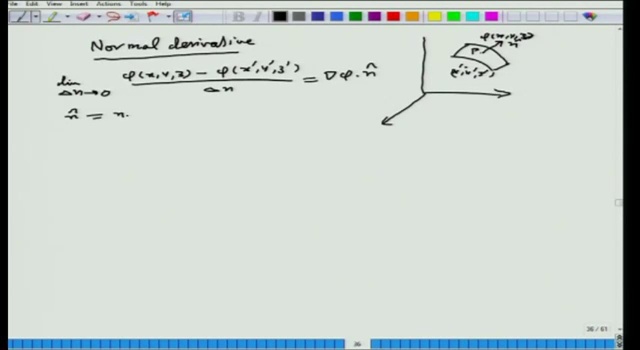 Edit View Insert Actions Tools Help
Normal derivative
lim Δn→0 φ(x,y,z) - φ(x',y',z') / Δn = ∇φ·n̂
n̂ = n.
φ(x,y,z)
P n̂
(x',y',z')
36
36 / 61